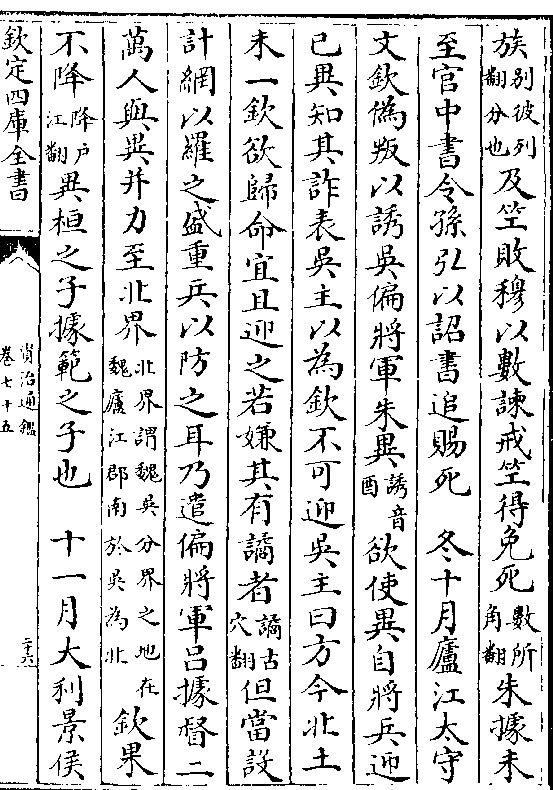 族别彼列翻分也及笁敗穆以數諫戒笁得免死數所角翻朱據未
至官中書令孫弘以詔書追賜死　冬十月廬江太守
文欽僞叛以誘吳偏將軍朱異誘音酉欲使異自將兵迎
已異知其詐表吳主以為欽不可迎吳主曰方今北土
未一欽欲歸命宜且迎之若嫌其有譎者譎古穴翻但當設
計網以羅之盛重兵以防之耳乃遣偏將軍吕據督二
萬人與異并力至北界北界謂魏吳分界之地在魏廬江郡南於吳為北欽果
不降降户江翻異桓之子據範之子也　十一月大利景侯
欽定四庫全書
資治通鑑
卷七十五
二十六